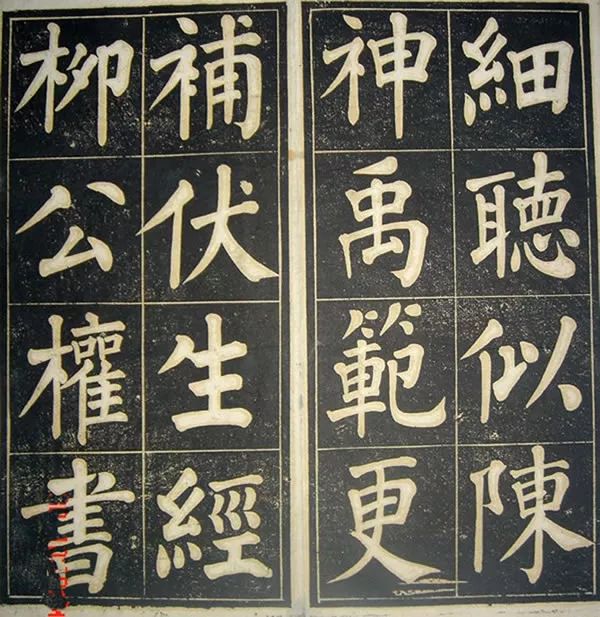 細聽似陳
神禹範更
補伏生經
柳公權書